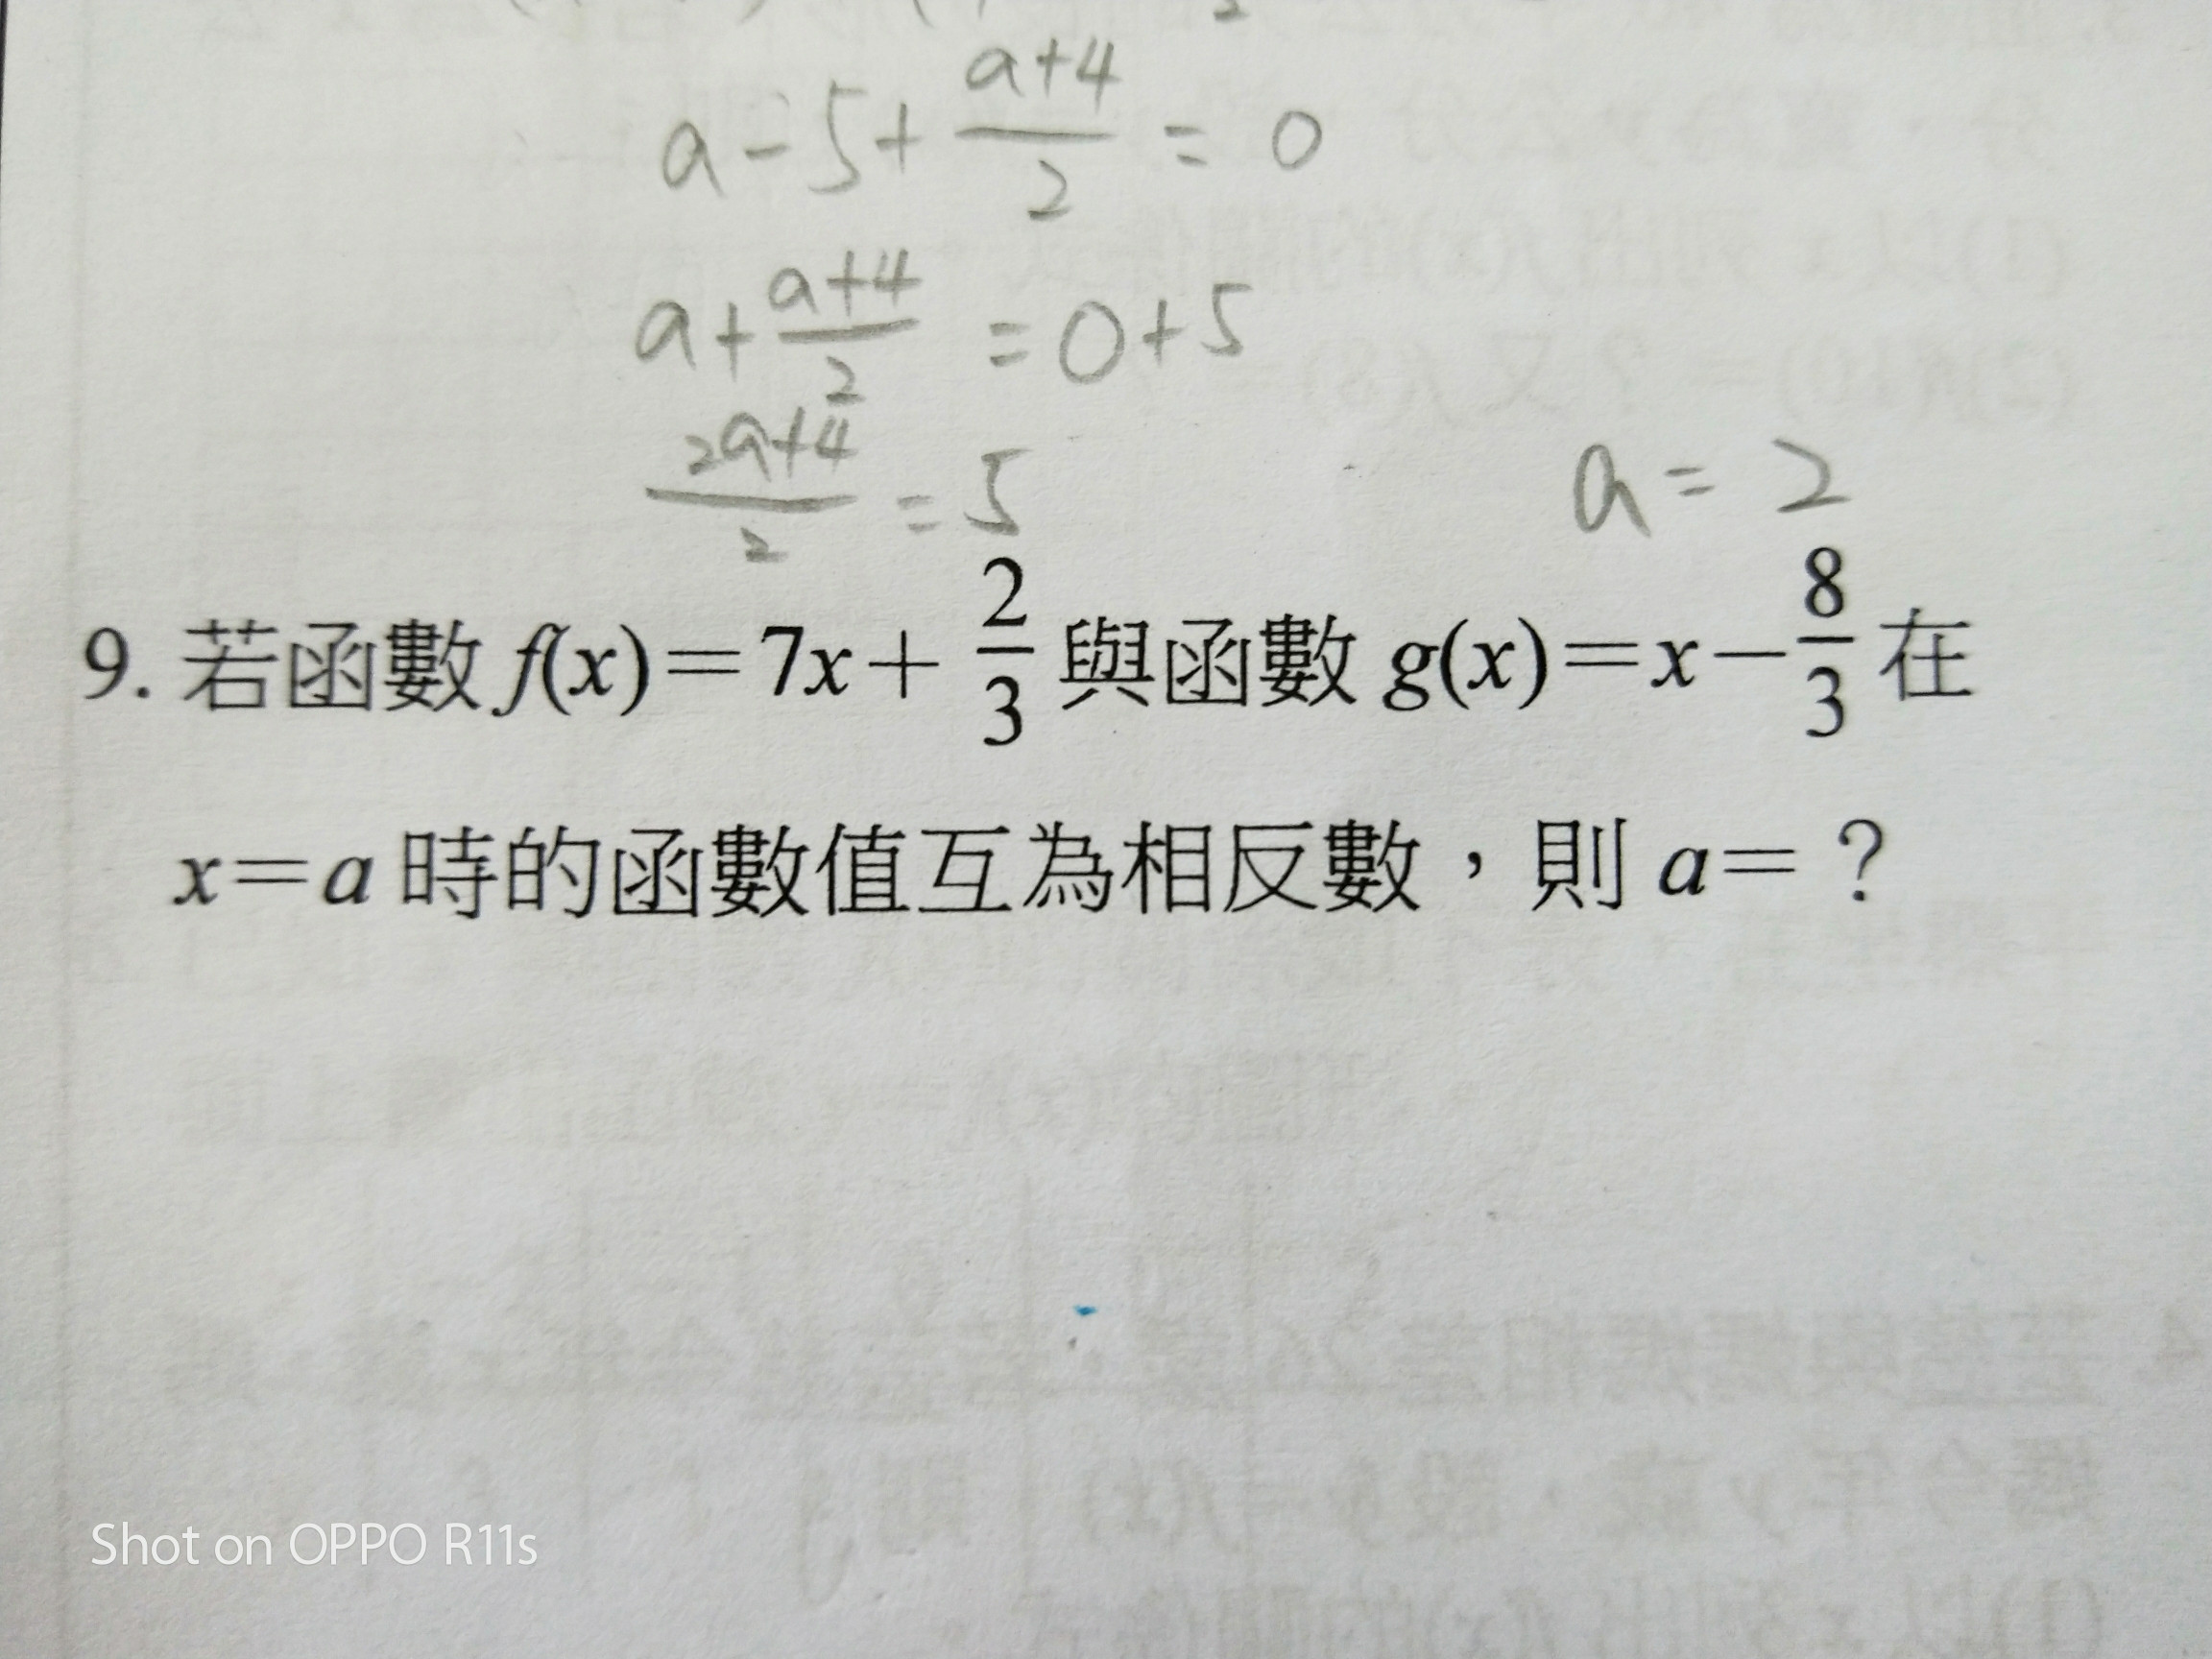 a-5+\frac{a+4}{2}=0
a+\frac{a+4}{2}=0+5
\frac{2a+4}{2}=5
a=2
9. 若函數 f(x)=7x+\frac{2}{3} 與函數 g(x)=x-\frac{8}{3} 在
x=a 時的函數值互為相反數，則 a=？
Shot on OPPO R11s